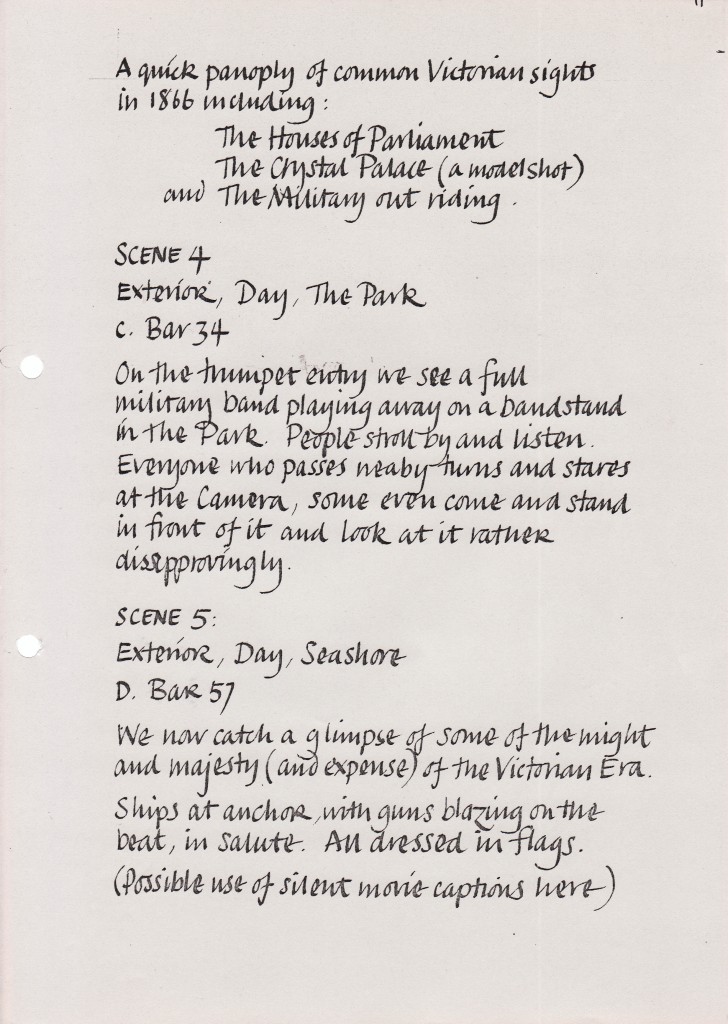 A quick panoply of common Victorian sights
in 1866 including:
The Houses of Parliament
The Crystal Palace (a model shot)
and The Military out riding.
SCENE 4
Exterior, Day, The Park
C. Bar 34
On the trumpet entry we see a full
military band playing away on a bandstand
in the Park. People stroll by and listen.
Everyone who passes neaby turns and stares
at the Camera, some even come and stand
in front of it and look at it rather
disapprovingly.
SCENE 5:
Exterior, Day, Seashore
D. Bar 57
We now catch a glimpse of some of the might
and majesty (and expense) of the Victorian Era.
Ships at anchor, with guns blazing on the
beat, in salute. All dressed in flags.
(Possible use of silent movie captions here)